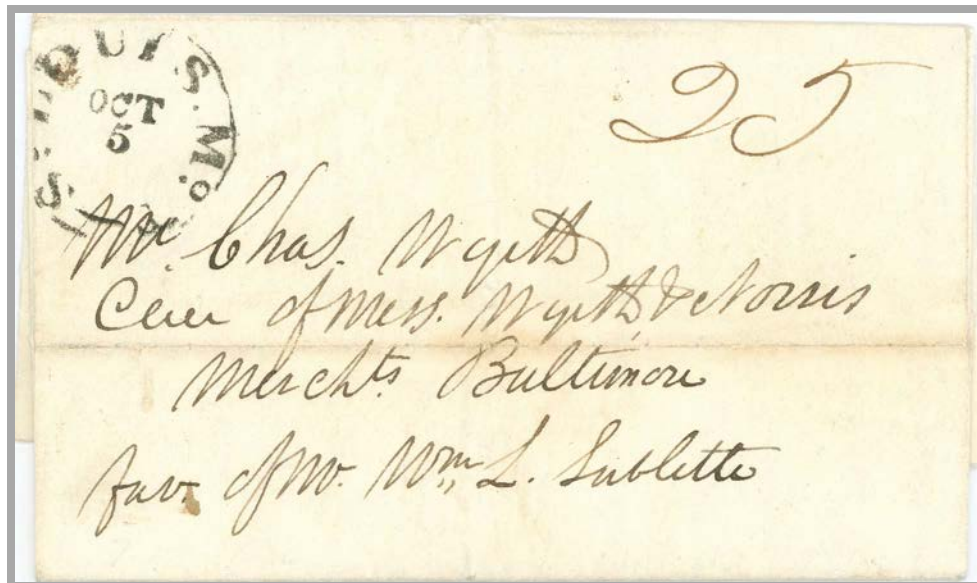 ST. LOUIS. Mo.
OCT
5
25
Mr. Chas. Wyeth
Care of Mess. Wyeth & Norris
Merchts. Baltimore
fav. of Mr. Wm. L. Sublette